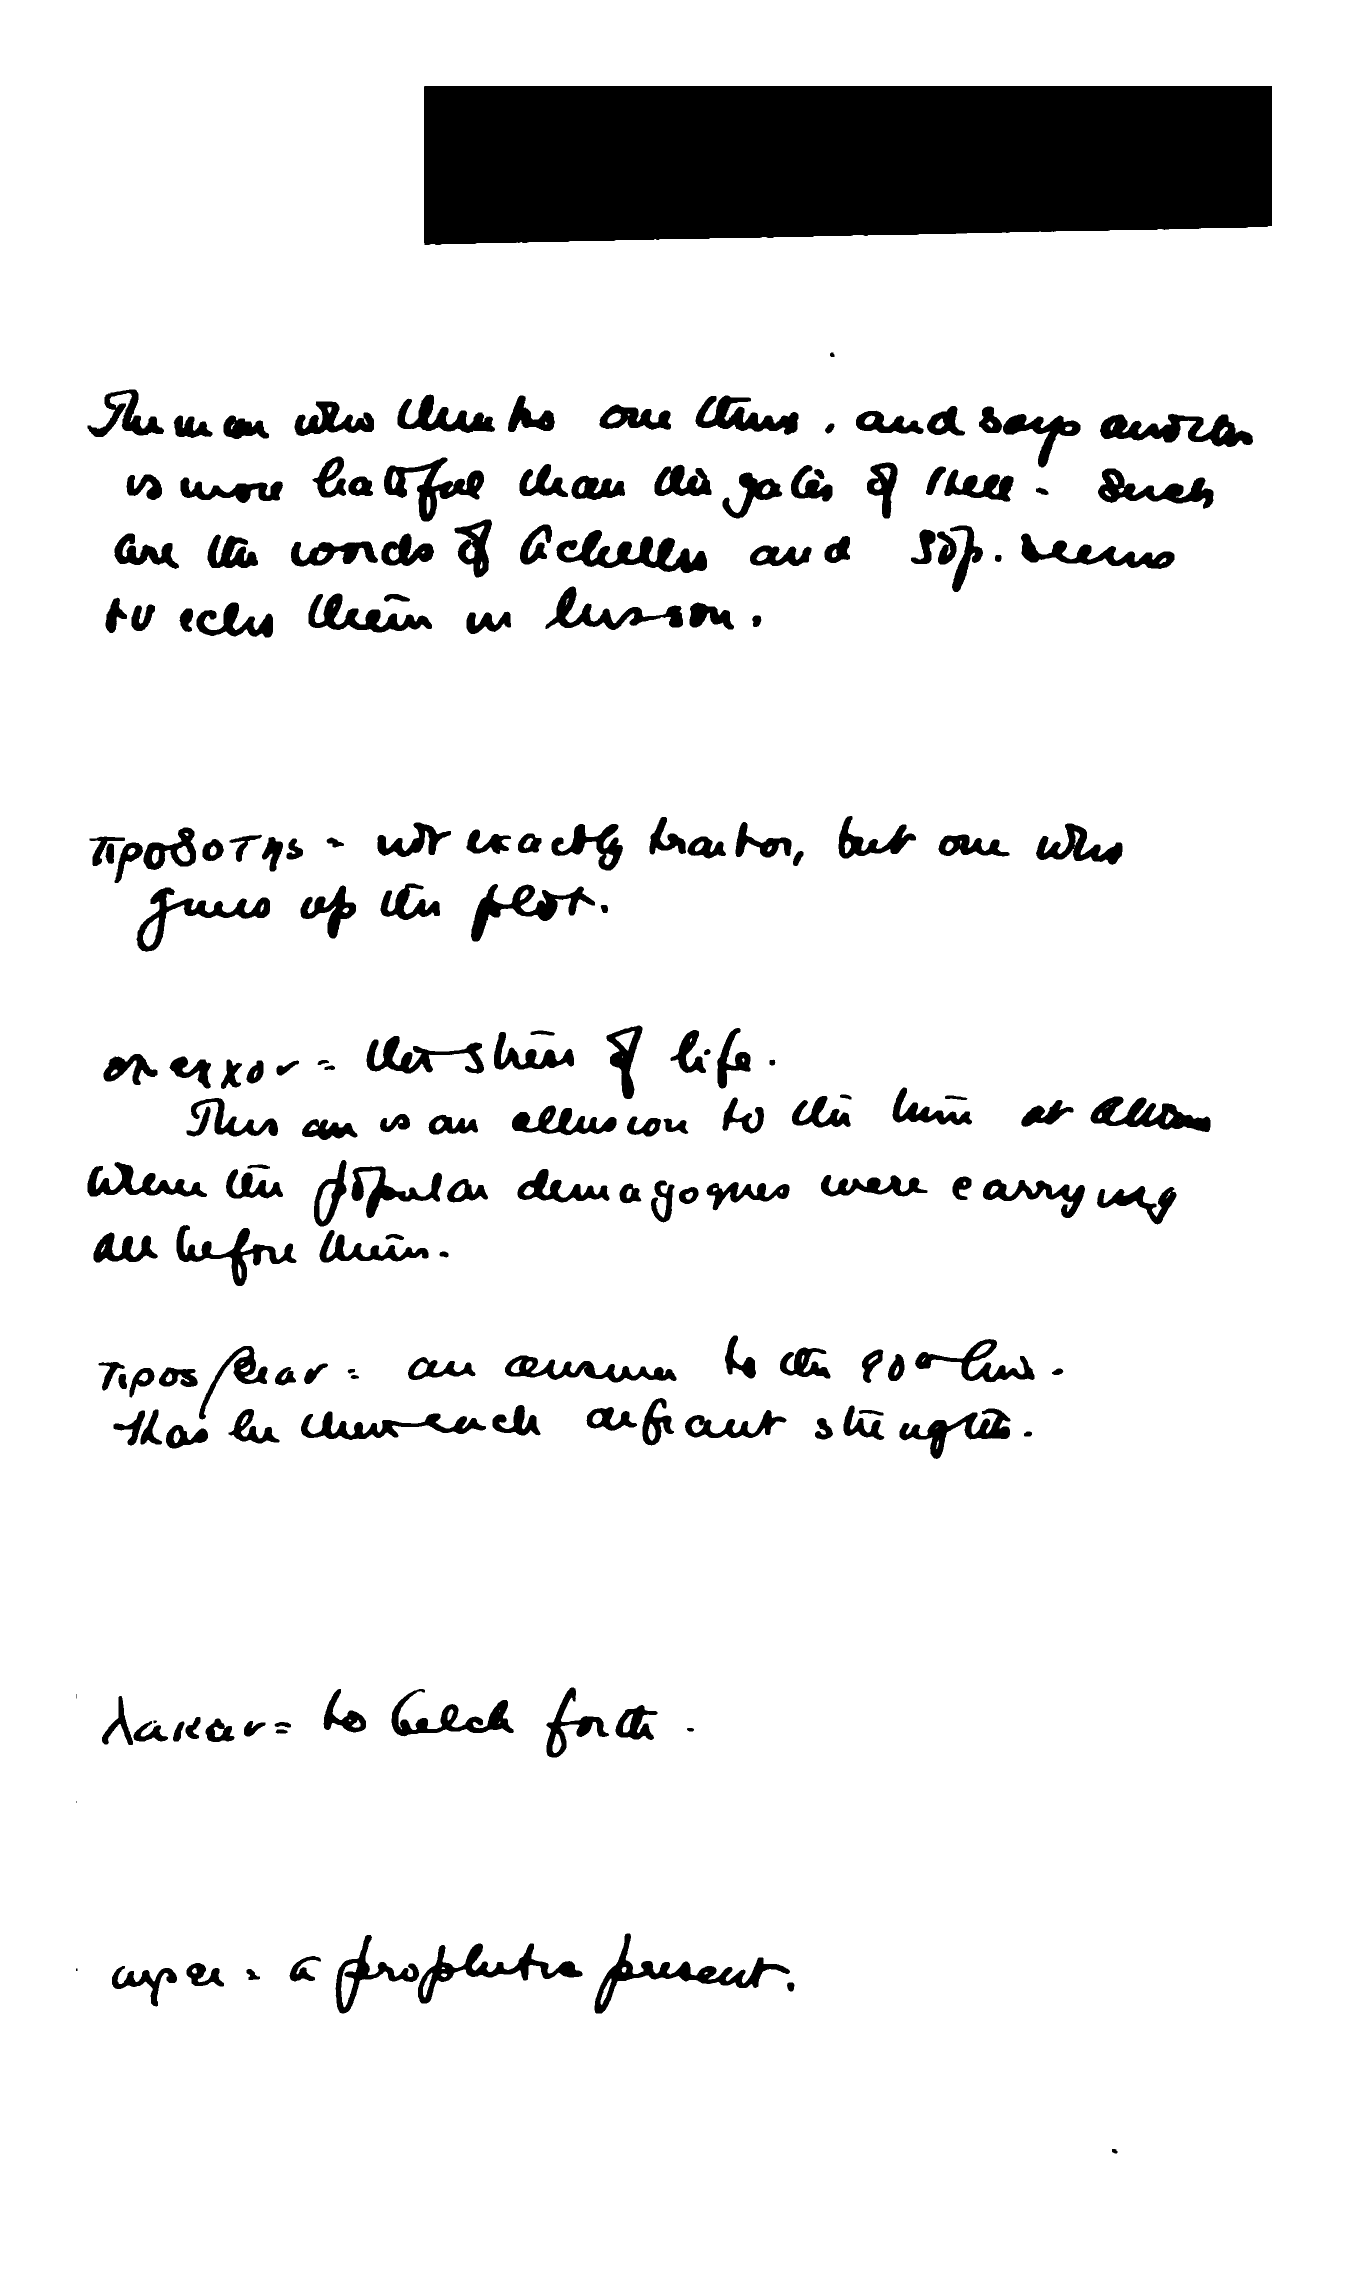 The man who thinks one thing, and says another
is more hateful than the gates of Hell. Such
are the words of Achilles and Sop. seems
to echo them in
προδοτης = not exactly traitor, but one who
gives up the plot.
= the stress of life.
This an is an allusion to the time at Athens
when the popular demagogues were carrying
all before them.
προς βιαν = an answer to the line.
that he thou each defiant
λακειν = to belch forth.
= a prophetic present.